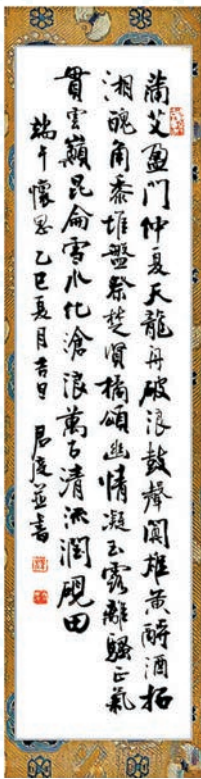 蒲艾盈門仲夏天龍舟破浪鼓聲闐雄黄酹酒招
湘魄角黍堆盤祭楚賢橘頌幽情凝玉露離騷正氣
貫雲巔昆侖雪水化滄浪萬古清流潤硯田
端午懷思乙巳夏月吉日君並書